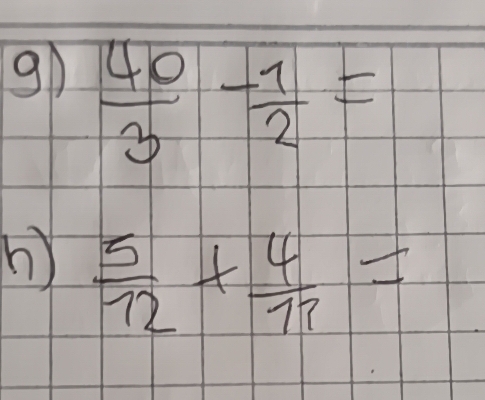 g) 40/3 - 1/2 =
h) 5/12 + 4/11 =